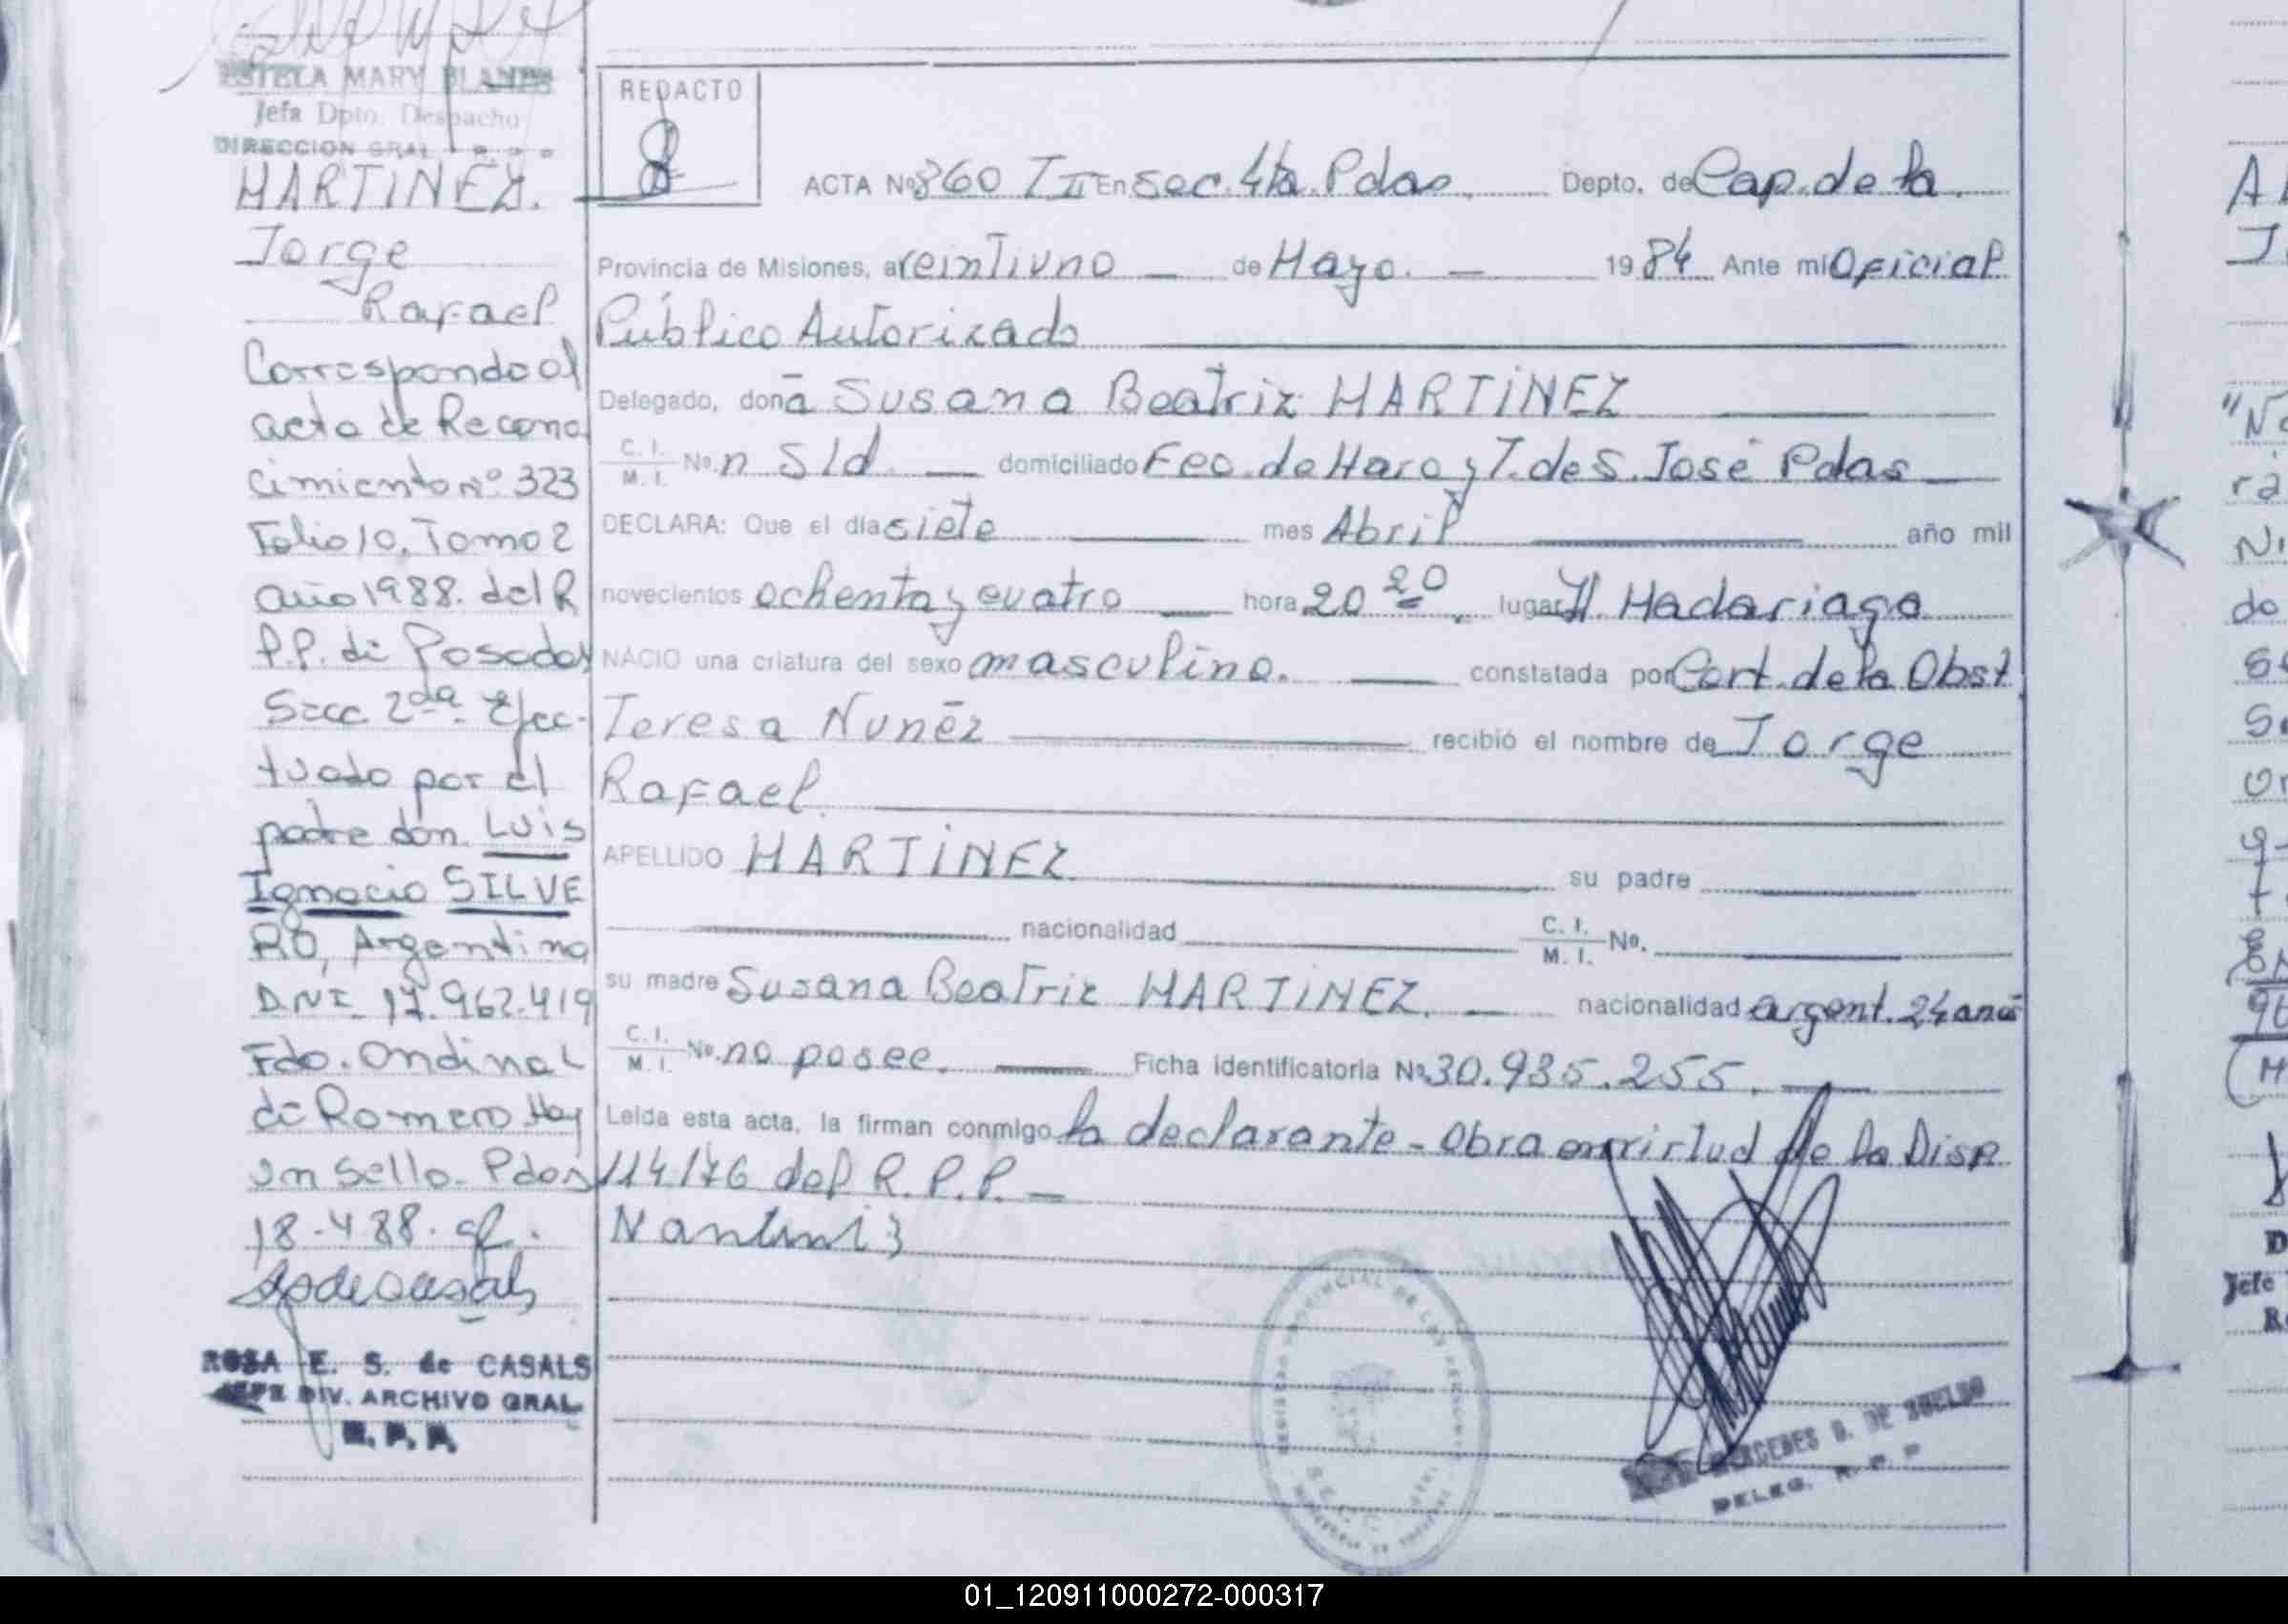 ESTELA MARY BLANES
Jefa Dpto. Despacho
DIRECCION GRAL
MARTINEZ.
Jorge
Rafael
Corresponde al
acta de Recono
cimiento Nº 323
Folio 10, Tomo 2
año 1988. del R
P.P. de Posadas
Secc 2da. Efec-
tuado por el
padre don Luis
Ignacio SILVE
RO, Argentino
D.N.I. 17.962.419
Fdo. Ondina L
de Romero Hay
un sello. Pdas
18-4-88.
ROSA E. S. de CASALS
JEFE DIV. ARCHIVO GRAL
R. P. P.
REDACTO
ACTA Nº 860 T II En Sec. 4ta. Pdas. Depto. de Cap. de la
Provincia de Misiones, a veintiuno de Mayo. 1984 Ante mí Oficial
Público Autorizado
Delegado, doña Susana Beatriz MARTINEZ
C. I. M. I. Nº. n s/d. domiciliado Fco. de Haro y T. de S. José Pdas
DECLARA: Que el día siete mes Abril año mil
novecientos ochenta y cuatro hora 20 20 lugar H. Madariaga
NACIO una criatura del sexo masculino. constatada por Cert. de la Obst
Teresa Nuñez recibió el nombre de Jorge
Rafael
APELLIDO MARTINEZ su padre
nacionalidad C. I. M. I. Nº.
su madre Susana Beatriz MARTINEZ. nacionalidad argent. 24 años
C. I. M. I. Nº. no posee. Ficha identificatoria Nº 30.935.255.
Leída esta acta, la firman conmigo la declarante - Obra en virtud de la Disp
114/76 del R. P. P.
REGISTRO PROVINCIAL DE LAS PERSONAS
MERCEDES D. DE
DELEG. R. P. P
01_120911000272-000317